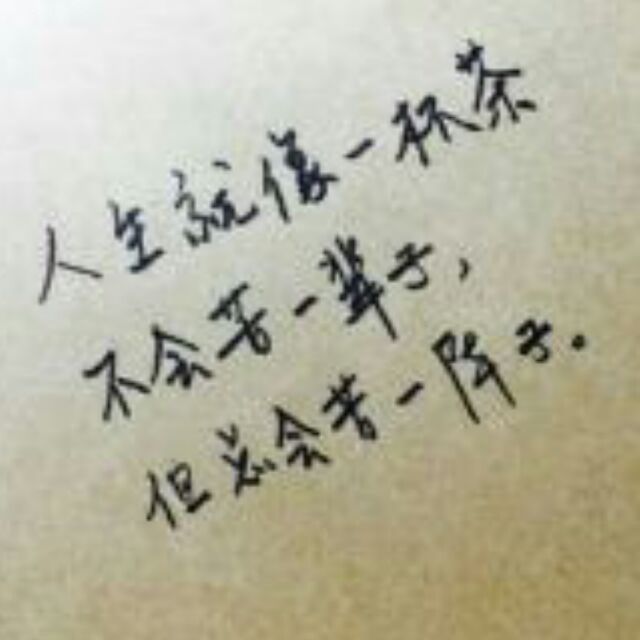 人生就像一杯茶
不会苦一辈子，
但总会苦一阵子。